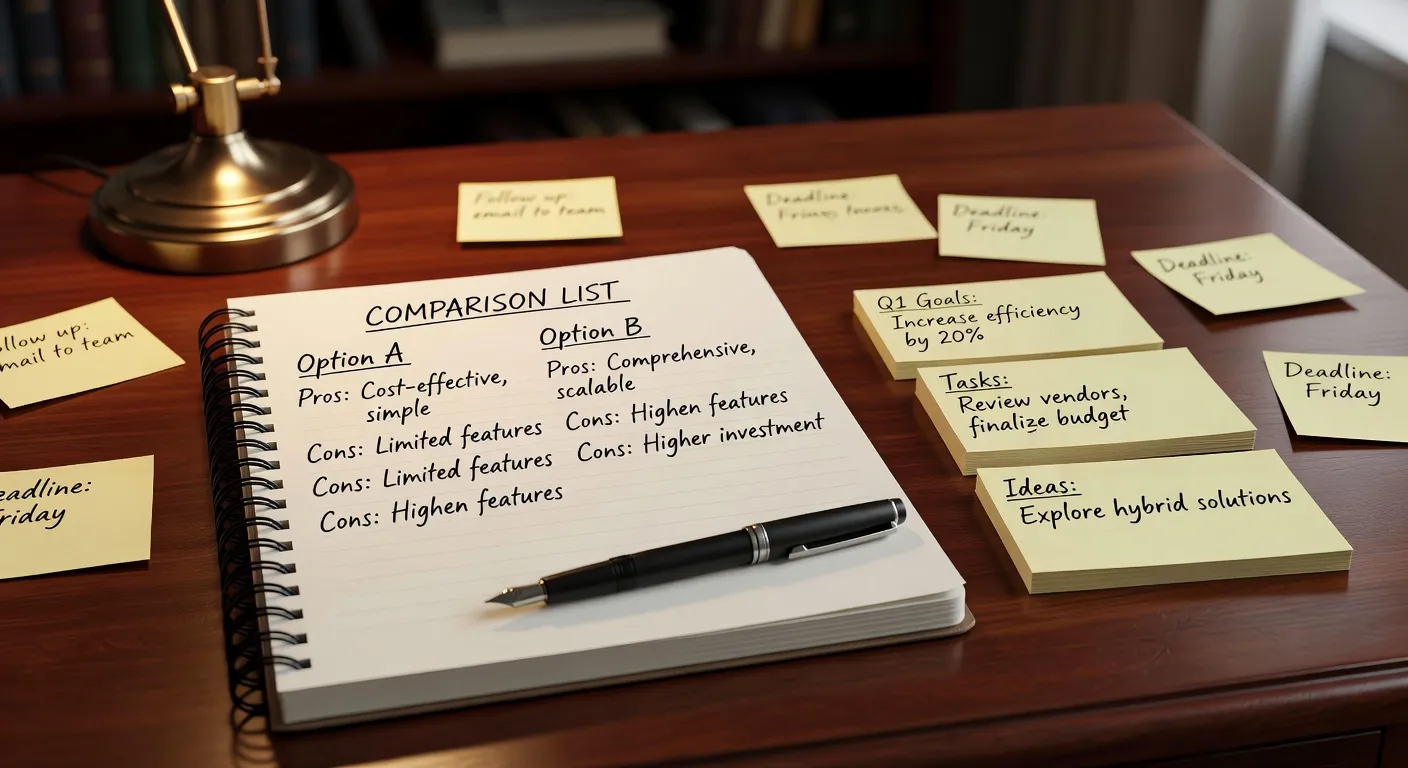 COMPARISON LIST
Option A
Pros: Cost-effective,
simple
Cons: Limited features
Cons: Limited features
Cons: Highen features
Option B
Pros: Comprehensive,
scalable
Cons: Highen features
Cons: Higher investment
Follow up:
email to team
Deadline:
Deadline:
Friday
Deadline:
Friday
Deadline:
Friday
Q1 Goals:
Increase efficiency
by 20%
Tasks:
Review vendors,
finalize budget
Ideas:
Explore hybrid solutions
ollow up:
mail to team
eadline:
riday